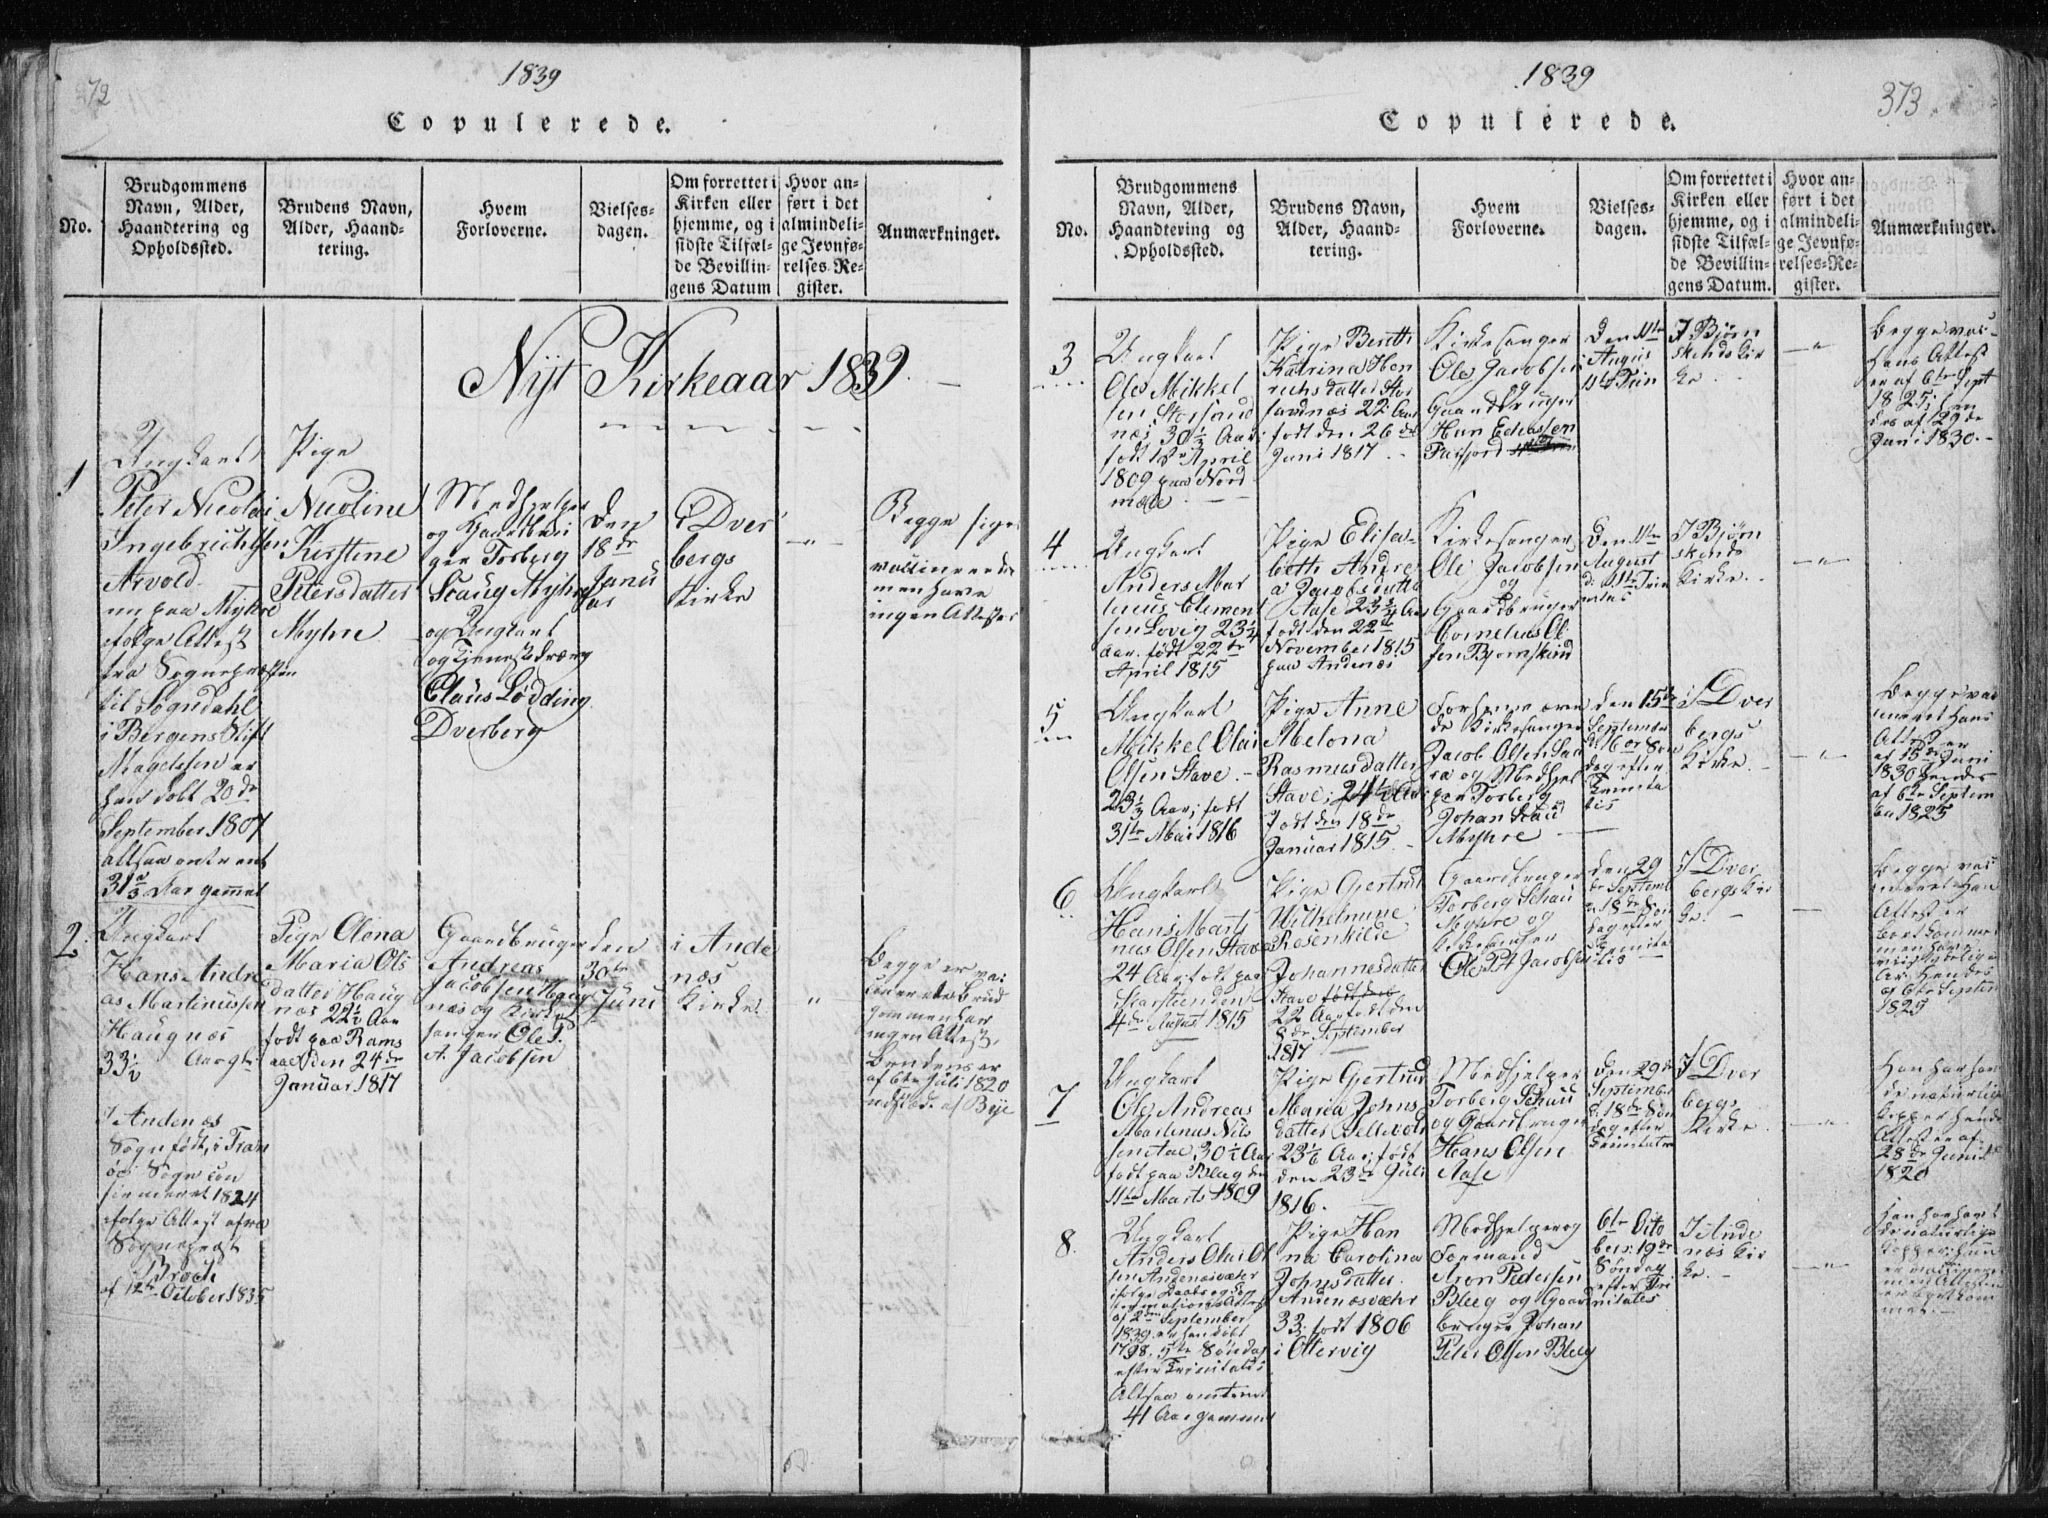 272
1839
Copulerede.
No.
Brudgommens
Navn, Alder,
Haandtering og
Opholdssted.
Brudens Navn,
Alder, Haand-
tering.
Hvem
Forloverne.
Vielses-
dagen.
Om forrettet i
Kirken eller
hjemme, og i
sidste Tilfæl-
de Bevillin-
gens Datum
Hvor an-
ført i det
almindeli-
ge Jevnfø-
relses-Re-
gister.
Anmærkninger.
Nÿt Kirkeaar 1839
1
Ungkarl
Peter Nicolai
Ingebrichtsen
Arvold
paa Myhre
følge Attest
fra Sognepræsten
til Sogndahl
i Bergens Stift
Magelssen er
han døbt 20de
September 1807
altsaa omtrent
31 2/3 Aar gammel
Pige
Nicoline
Kirstine
Petersdatter
Myhre
Medhjelper
og Gaardbru
ger Torberg
Scaug Myhre
og Ungkarl
og Tjenestedræng
Claus Lødding
Dverberg
Den
18de
Janu
ar
i Dver
bergs
Kirke
"
Begge sige
vaccinerede
men have
ingen Attester
2
Ungkarl
Hans Andre
as Martinussen
Haugnæs
33½ Aar gl.
I Andenæs
Sogn født, i Tran
öe Sogn con
firmeret 1824
ifølge Attest fra
Sognepræst
Broch
af 12te October 1835
Pige Olona
Maria Ols
datter Haug
næs 22½ Aar
født paa Rams
aae den 24de
Januar 1817
Gaardbruger
Andreas
Jacobsen Haug
næs og Kirke
sanger Ole P.
A. Jacobsen
den
30te
Juni
i Ande
næs
Kirke
"
Begge er vac
cinerede Brud
gommen har
ingen Attest,
Brudens er
af 6te Juli 1820
udsted. af Bÿe
373
1839
Copulerede.
No.
Brudgommens
Navn, Alder,
Haandtering og
Opholdssted.
Brudens Navn,
Alder, Haand-
tering.
Hvem
Forloverne.
Vielses-
dagen.
Om forrettet i
Kirken eller
hjemme, og i
sidste Tilfæl-
de Bevillin-
gens Datum.
Hvor an-
ført i det
almindeli-
ge Jevnfø-
relses-Re-
gister.
Anmærkninger.
3
Ungkarl
Ole Mikkel
sen
næs 30⅓ Aar
født 18de April
1809 paa Nord
mæle
Pige Bereth
Katrina Hen
richsdatter
22 Aar
født den 26de
Juni 1817
Kirkesanger
Ole Jacobsen
og
Gaardbruger
Den 11te
August
11te Trin
I Bjørn
skinds Kir
ke.
"
Begge vac
Hans Attest
er af 6te Sept
1825; hen
des af 29de
Juni 1830.
4
Ungkarl
Anders Mar
tinus Clement
sen Lovig 23¼
Aar. født 22de
April 1815
Pige Elisa-
beth Andre
a Jacobsdatter
Aase 23¾ Aar
født den 22de
November 1815
paa Andenæs
Kirkesanger
Ole Jacobsen
og
Gaardbruger
Cornelius Ol
sen Bjørnskind
Den 11te
August
d. 11te Trin
itatis
I Bjørn
skinds
Kirke.
"
5
Ungkarl
Mikkel Olai
Olsen Stave.
23⅓ Aar; født
31te Mai 1816
Pige Anne
Melona
Rasmusdatter
Stave; 24½ Aar
født den 18de
Januar 1815.
Forhenværen
de Kirkesanger
Jacob Olsen
og Medhjel
per Torberg
Johan Scau
Myhre
den 15de
September
d. 16de Søn
dag efter
Trinita
tis
i Dver
bergs
Kirke.
"
Begge vac
cineret Hans
Attest er
af 15de Juni
1830 Hendes
af 6te Septem
ber 1825
6
Ungkarl
Hans Marti
nus Olsen Stave
24 Aar; født paa
Skarstenden
4de August 1815
Pige Gertrud
Wilhelmine
Rosenkilde
Johannesdatter
Stave
22 Aar født den
8de September
1817
Gaardbruger
Torberg Schau
Myhre og
Kirkesanger
Ole P A Jacobsen
den 29
de Septemb
d. 18de Søn
dag efter
Trinita
tis
I Dver
bergs Kir
ke.
"
Begge vac
cineret Han
Attest er
bortkommen
men
Hendes
af 6te Septem
1825
7
Ungkarl
Ole Andreas
Martinus Nils
sen Aae, 30½ Aar
født paa Bleg den
11te Marts 1809
Pige Gertrud
Maria Johns
datter
23 1/6 Aar; født
den 23de Juli
1816.
Medhjelper
Torberg Schau
og Gaardbruger
Hans Olsen
Aase
den 29de
September
d. 18de Søn
dag efter
Trinitatis
I Dver
bergs
Kirke.
"
Han har har
de naturlige
Kopper Hendes
Attest er af
28de Juni
1820
8.
Ungkarl
Anders Olai Ol
sen Andenæsvæhr
ifølge Daabs og
Attest
af 2den September
1839 er han døbt
1798. 5te Søndag
efter Trinitatis
Altsaa omtrent
41 Aar gammel
Pige Han
na Carolina
Johnsdatter.
Andenæsvæhr
33. født 1806
i Ottervig
Medhjelper og
Formand
Aron Pedersen
Bleg og Gaard
bruger Johan
Peter Olsen Bleeg
6te Octo
ber: 19de
Søndag
efter Tri
nitatis
I Ande
næs Kir
ke.
"
Han har havt
de naturlige
Kopper; hun
er
men Attesten
er bortkom
met.